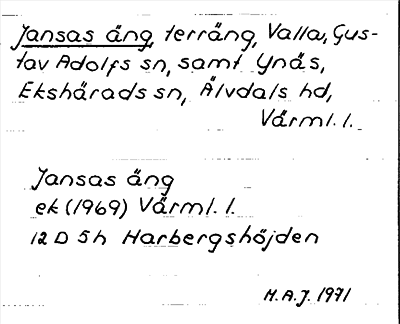 Jansas äng, terräng, Valla, Gus-
tav Adolfs sn, samt Ynäs,
Ekshärads sn, Älvdals hd,
Värml. l.
Jansas äng
ek (1969) Värml. l.
12 D 5h Harbergshöjden
H.A.J. 1971